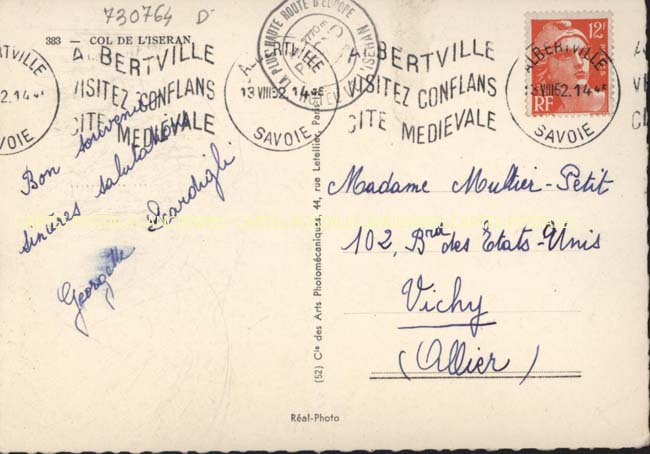 730764 D
383 — COL DE L'ISERAN.
ALBERTVILLE
VISITEZ CONFLANS
CITE MEDIÉVALE
ALBERTVILLE
13 VIII 52. 14 45
SAVOIE
LA PLUS HAUTE ROUTE D'EUROPE
2770m
ALBERTVILLE
VISITEZ CONFLANS
CITE MEDIÉVALE
ALBERTVILLE
13 VIII 52. 14 45
SAVOIE
12F
RF
Bon souvenir
sincères salutations
Georgette Scardigli
Madame Multier-Petit
102, Brd des États-Unis
Vichy
(Allier)
(52) Cie des Arts Photomécaniques, 44, rue Letellier, Paris
Réal-Photo